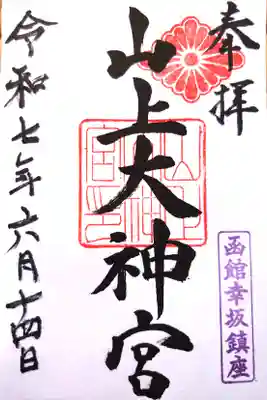 奉拝
函館幸坂鎮座
山上大神宮
令和七年六月十四日